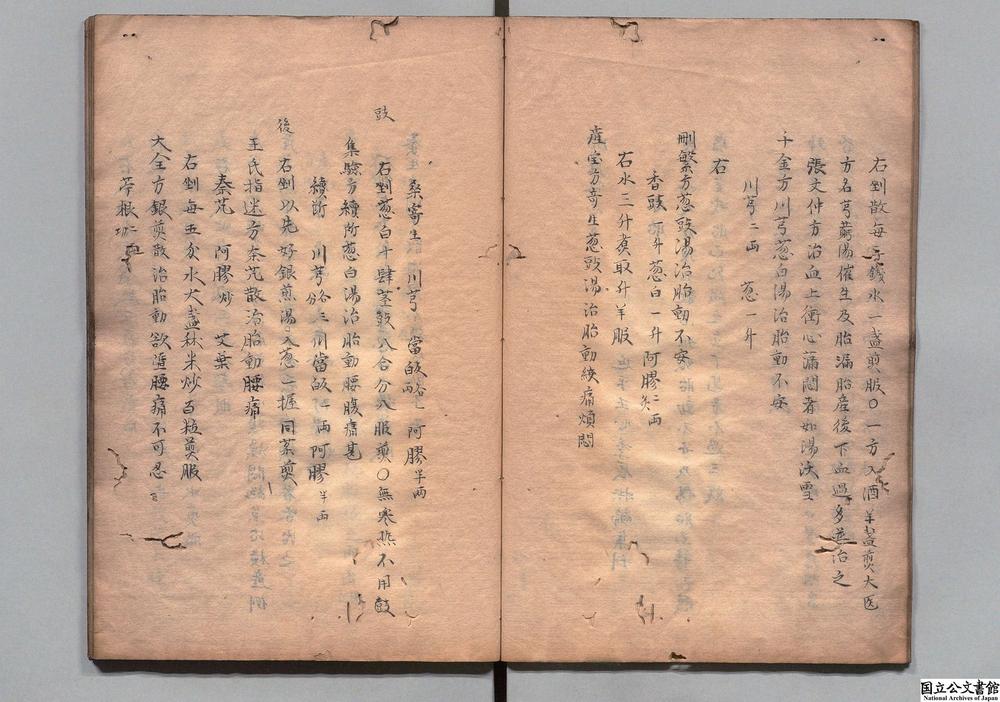 右剉散每 錢水一盞煎服〇一方入酒半盞煎大医
方名芎藭湯催生及胎漏胎産後下血過多並治之
張文仲方治血上衝心漏悶者如湯沃雪
千金方川芎葱白湯治胎動不安
川芎二两 葱一升
右
刪繁方葱豉湯治胎動不安
香豉一升 葱白一升 阿膠二两炙
右水三升煮取升半服
産宝方寄生葱豉湯治胎動絞痛煩悶
桑寄生 川芎 當皈 阿膠半两
豉
右剉葱白十肆莖豉八合分八服煎〇無寒热不用豉
集驗方續断葱白湯治胎動腰腹痛甚
續断 川芎各三分 當皈一两 阿膠半两
後
右剉以先好銀煎湯入葱一握同煮煎
王氏指迷方秦艽散治胎動腰痛
秦艽 阿膠炒 艾葉
右剉每五分水大盞秫米炒百粒煎服
大全方銀煎散治胎動欲堕腰痛不可忍
苧根二两
国立公文書館
National Archives of Japan